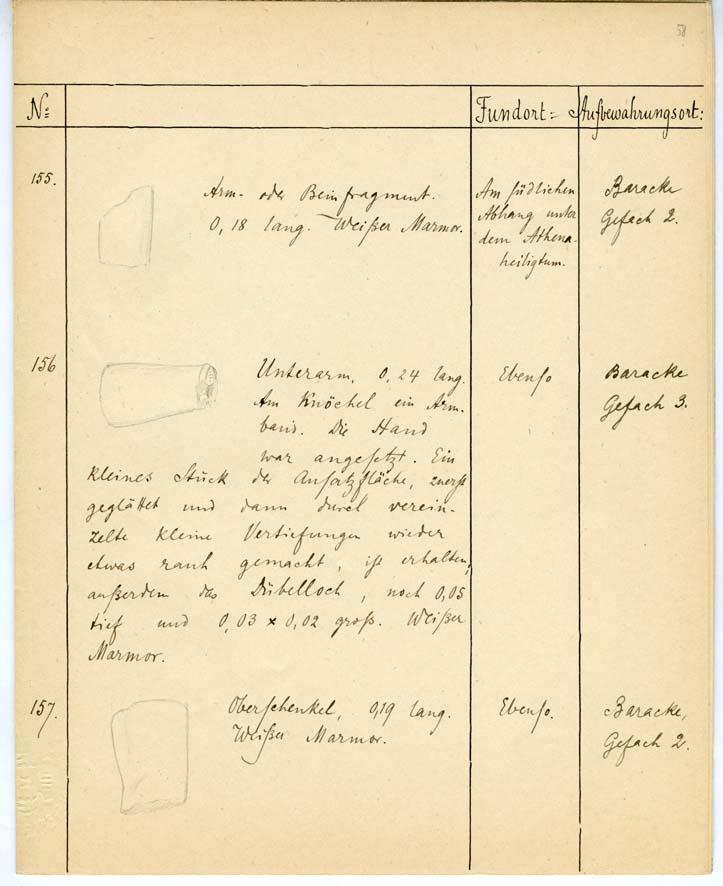 58
No: Fundort= Aufbewahrungsort:
155.
Arm- oder Beinfragment.
0,18 lang. Weißer Marmor.
Am südlichen
Abhang unter
dem Athena-
heiligtum.
Baracke
Gefach 2.
156
Unterarm, 0,24 lang.
Am Knöchel ein Arm-
band. Die Hand
war angesetzt. Ein
kleines Stück der Ansatzfläche, zuerst
geglättet und dann durch verein-
zelte kleine Vertiefungen wieder
etwas rauh gemacht, ist erhalten,
außerdem das Dübelloch, noch 0,05
tief und 0,03 x 0,02 groß. Weißer
Marmor.
Ebenso
Baracke
Gefach 3.
157.
Oberschenkel, 0,19 lang.
Weißer Marmor.
Ebenso.
Baracke,
Gefach 2.